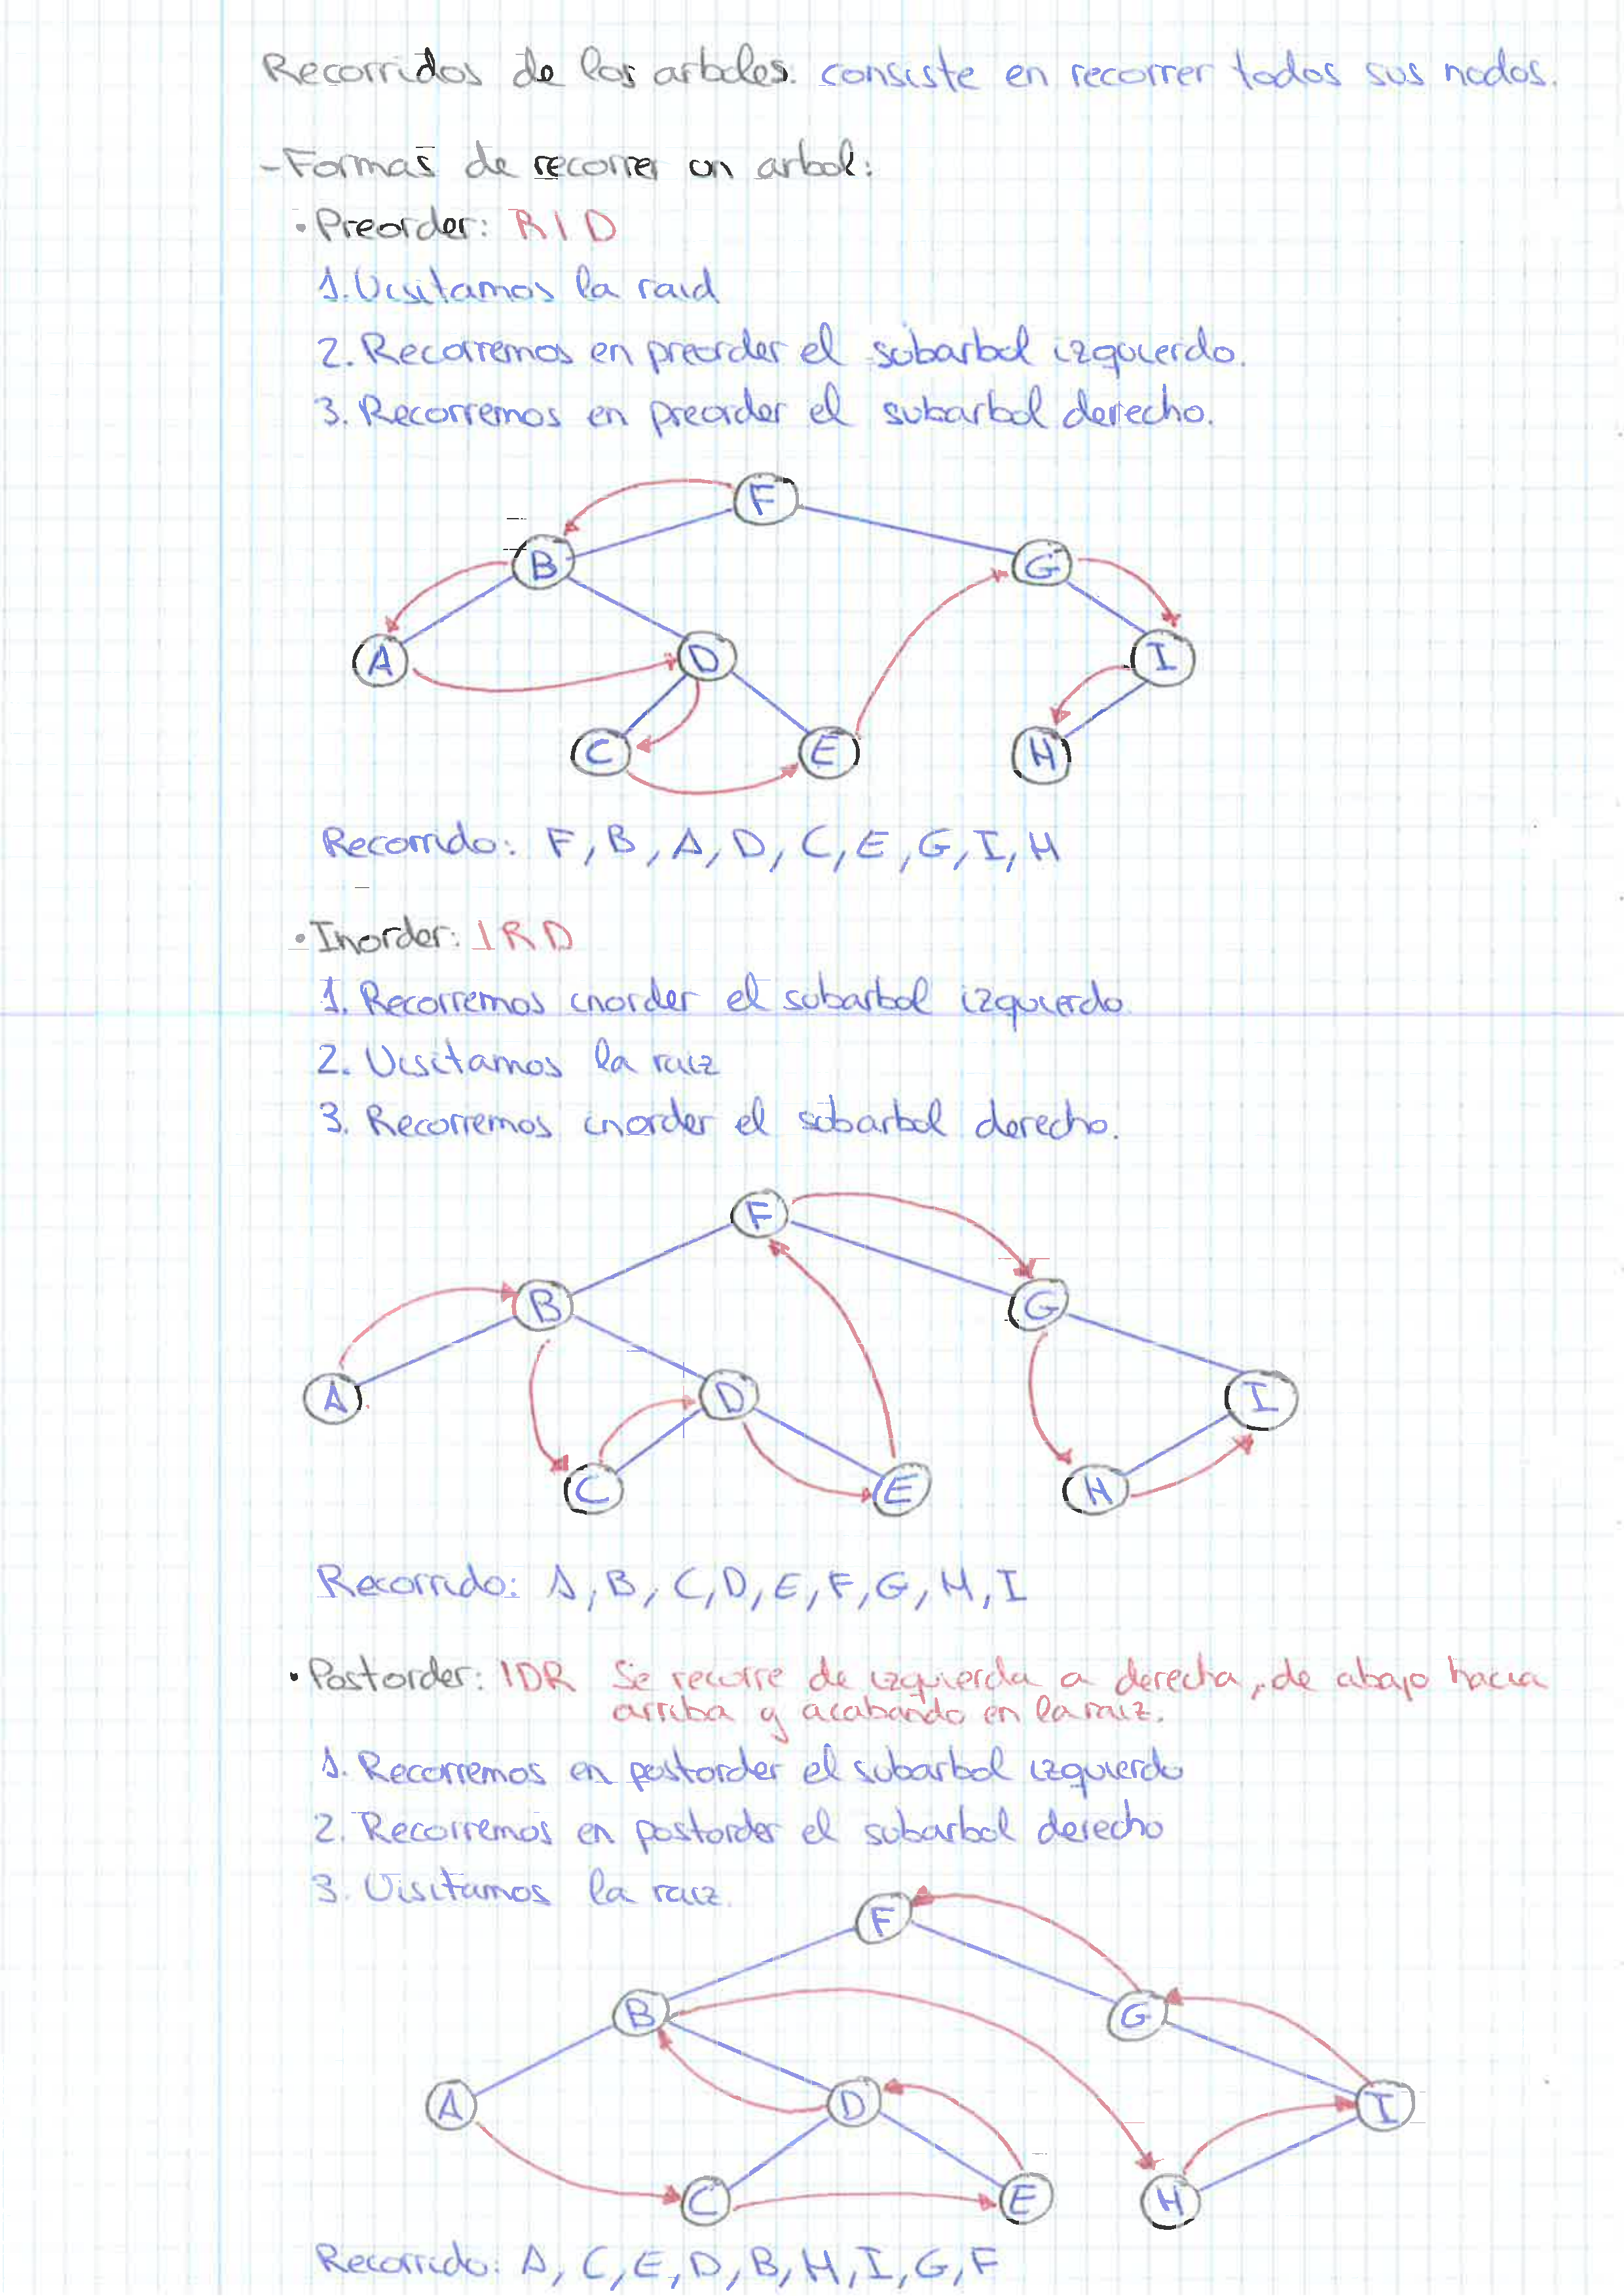 Recorridos de los arboles: consiste en recorrer todos sus nodos.
-Formas de recorrer un arbol:
· Preorder: RID
1. Visitamos la raid
2. Recorremos en preorder el subarbol izquierdo.
3. Recorremos en preorder el subarbol derecho.
F
B G
A D I
C E H
Recorrido: F, B, A, D, C, E, G, I, H
· Inorder: IRD
1. Recorremos inorder el subarbol izquierdo
2. Visitamos la raiz
3. Recorremos inorder el subarbol derecho.
F
B G
A D I
C E H
Recorrido: A, B, C, D, E, F, G, H, I
· Postorder: IDR Se recorre de izquierda a derecha, de abajo hacia
arriba y acabando en la raiz.
1. Recorremos en postorder el subarbol izquierdo
2. Recorremos en postorder el subarbol derecho
3. Visitamos la raiz.
F
B G
A D I
C E H
Recorrido: A, C, E, D, B, H, I, G, F